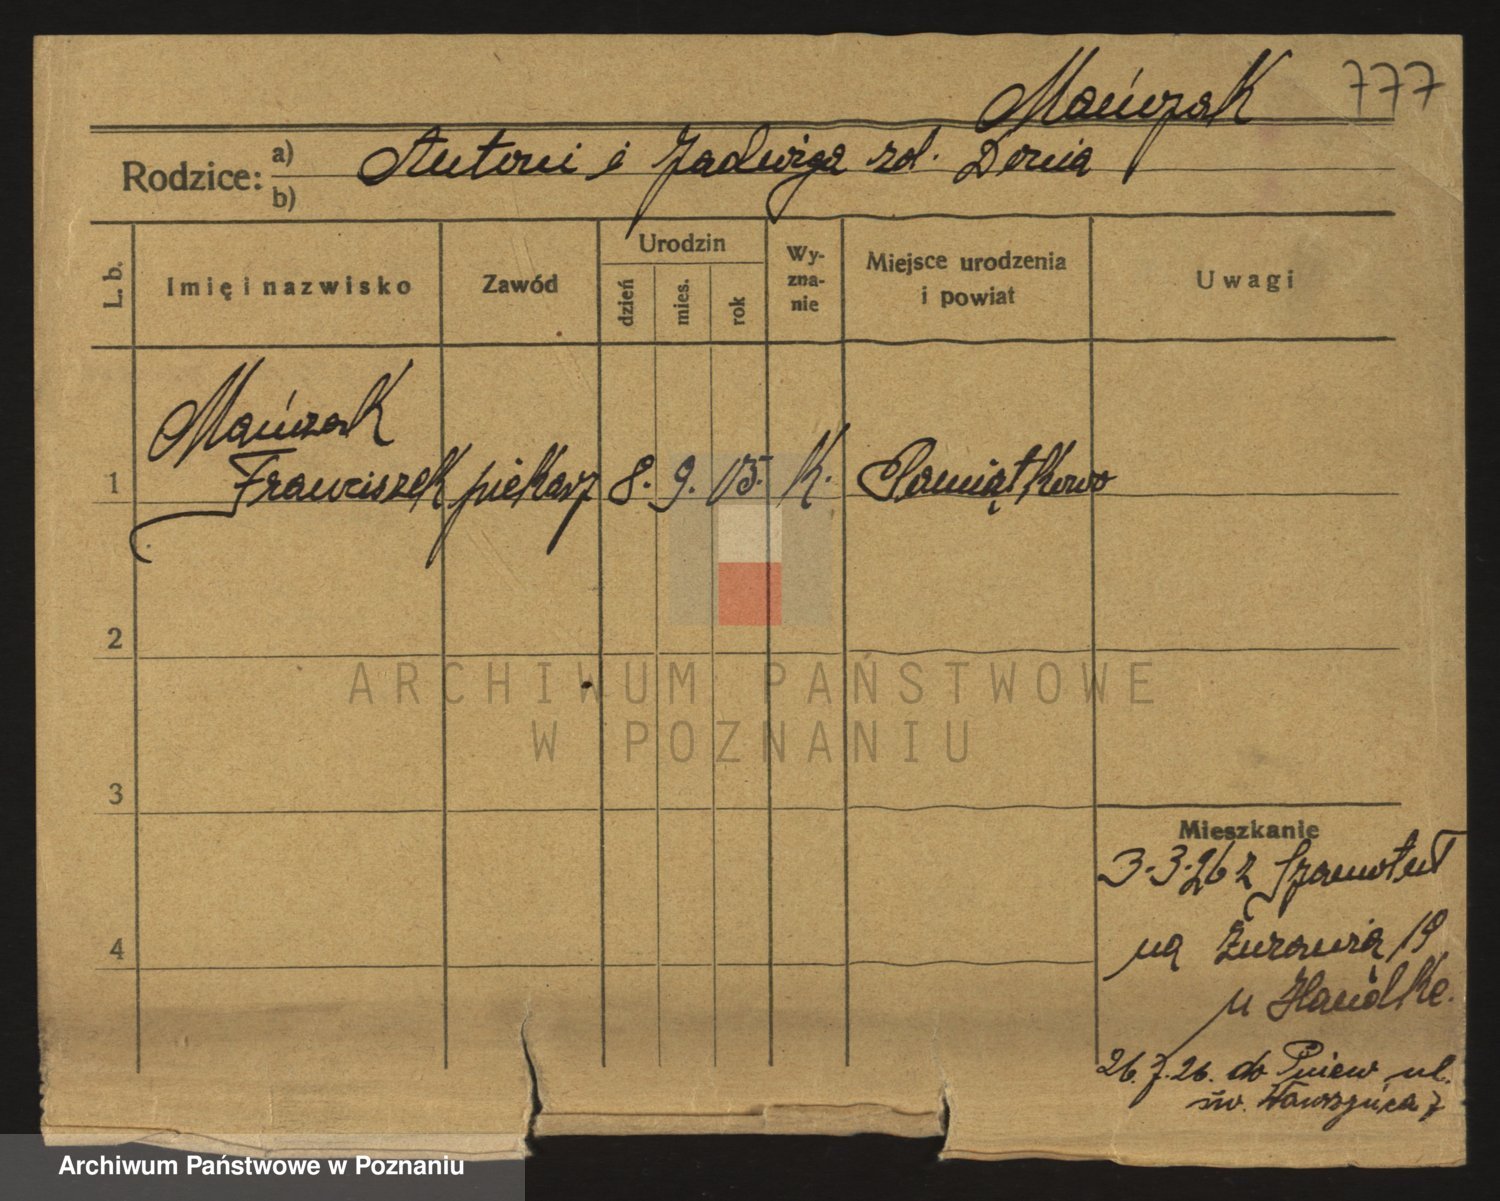 Mańczak 777
Rodzice: a) Antoni i Jadwiga zd. Dornia
b)
L. b. Imię i nazwisko Zawód Urodzin dzień mies. rok Wyznanie Miejsce urodzenia i powiat Uwagi
Mańczak
1 Franciszek piekarz 8. 9. 05. K. Pamiątkowo
2
ARCHIWUM PAŃSTWOWE
W POZNANIU
3
Mieszkanie
3.3.26 z Szamotuł
4 na Żurawia 19
u
26.7.26. do Pniew ul.
św. Wawrzyńca 7
Archiwum Państwowe w Poznaniu